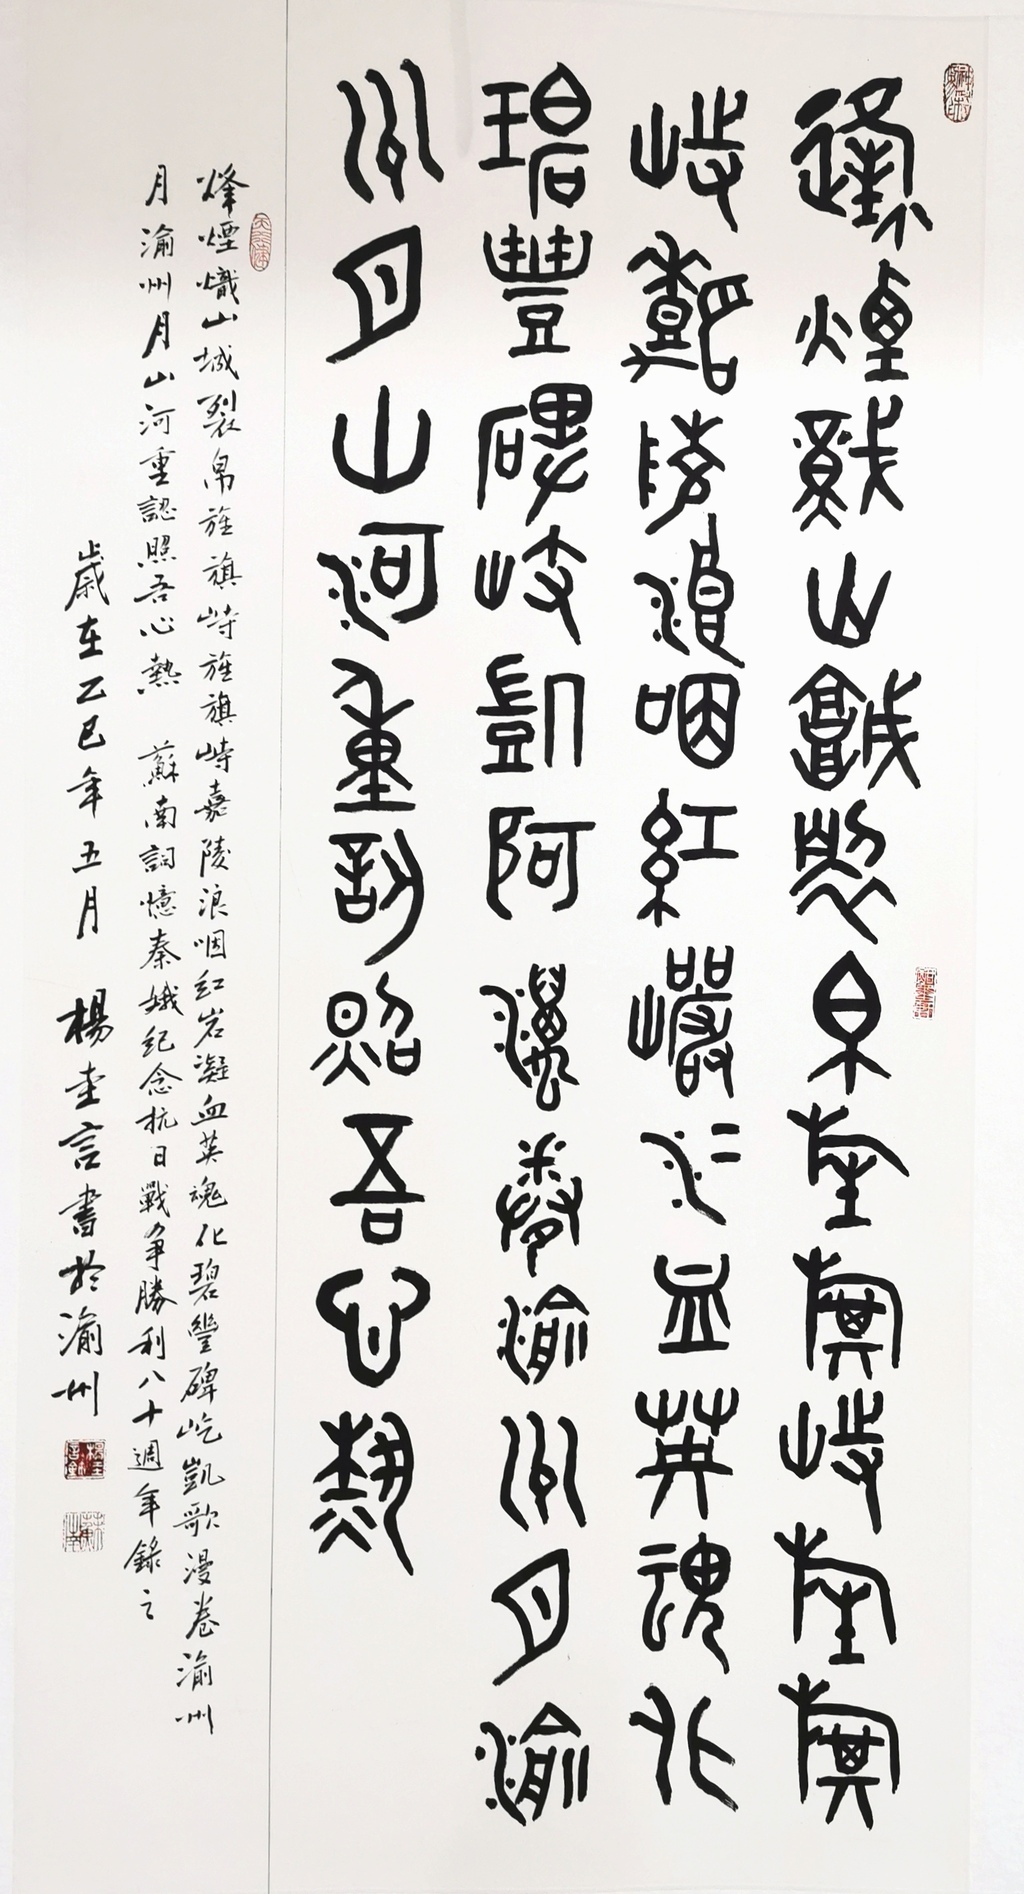 烽煙熾山城裂帛旌旗峙旌旗
峙嘉陵浪咽紅巖凝血英魂化
碧豐碑屹凱歌漫卷渝州月渝
州月山河重認照吾心熱
烽煙熾山城裂帛旌旗峙旌旗峙嘉陵浪咽红岩凝血英魂化碧豐碑屹凱歌漫卷渝州
月渝州月山河重認照吾心熱 蘇南詞憶秦娥紀念抗日戰争勝利八十週年錄之
歲在乙巳年五月 楊圭言書於渝州